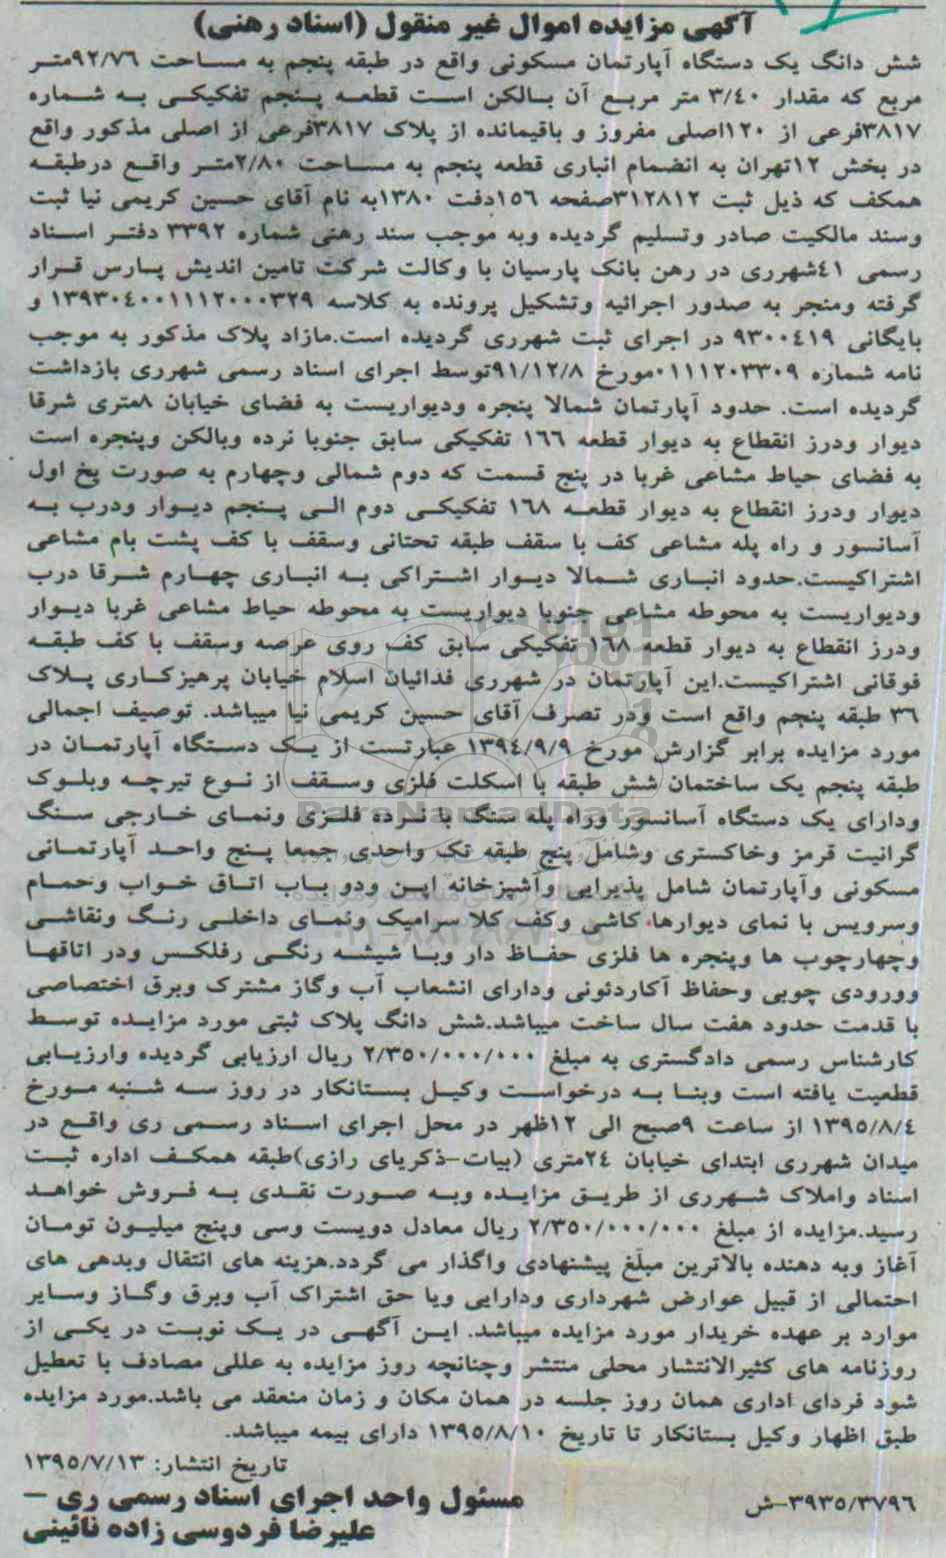 آگهی مزایده اموال غیر منقول (اسناد رهنی)
شش دانگ یک دستگاه آپارتمان مسکونی واقع در طبقه پنجم به مساحت ۹۲/۷۶متر
مربع که مقدار ۳/٤۰ متر مربع آن بالکن است قطعه پنجم تفکیکی به شماره
۳۸۱۷فرعی از ۱۲۰اصلی مفروز و باقیمانده از پلاک ۳۸۱۷فرعی از اصلی مذکور واقع
در بخش ۱۲تهران به انضمام انباری قطعه پنجم به مساحت ۲/۸۰متر واقع درطبقه
همکف که ذیل ثبت ۳۱۲۸۱۲صفحه ۱٥٦دفت ۱۳۸۰به نام آقای حسین کریمی نیا ثبت
وسند مالکیت صادر وتسلیم گردیده وبه موجب سند رهنی شماره ۳۳۹۲ دفتر اسناد
رسمی ٤۱شهرری در رهن بانک پارسیان با وکالت شرکت تامین اندیش پارس قرار
گرفته ومنجر به صدور اجرائیه وتشکیل پرونده به کلاسه ۱۳۹۳۰٤۰۰۱۱۱۲۰۰۰۳۲۹ و
بایگانی ۹۳۰۰٤۱۹ در اجرای ثبت شهرری گردیده است.مازاد پلاک مذکور به موجب
نامه شماره ۰۱۱۱۲۰۳۳۰۹مورخ ۹۱/۱۲/۸توسط اجرای اسناد رسمی شهرری بازداشت
گردیده است. حدود آپارتمان شمالا پنجره ودیواریست به فضای خیابان ۸متری شرقا
دیوار ودرز انقطاع به دیوار قطعه ۱٦٦ تفکیکی سابق جنوبا نرده وبالکن وپنجره است
به فضای حیاط مشاعی غربا در پنج قسمت که دوم شمالی وچهارم به صورت پخ اول
دیوار ودرز انقطاع به دیوار قطعه ۱٦۸ تفکیکی دوم الی پنجم دیوار ودرب به
آسانسور و راه پله مشاعی کف با سقف طبقه تحتانی وسقف با کف پشت بام مشاعی
اشتراکیست.حدود انباری شمالا دیوار اشتراکی به انباری چهارم شرقا درب
ودیواریست به محوطه مشاعی جنوبا دیواریست به محوطه حیاط مشاعی غربا دیوار
ودرز انقطاع به دیوار قطعه ۱٦۸ تفکیکی سابق کف روی عرصه وسقف با کف طبقه
فوقانی اشتراکیست.این آپارتمان در شهرری فدائیان اسلام خیابان پرهیزکاری پلاک
۳٦ طبقه پنجم واقع است ودر تصرف آقای حسین کریمی نیا میباشد. توصیف اجمالی
مورد مزایده برابر گزارش مورخ ۱۳۹٤/۹/۹ عبارتست از یک دستگاه آپارتمان در
طبقه پنجم یک ساختمان شش طبقه با اسکلت فلزی وسقف از نوع تیرچه وبلوک
ودارای یک دستگاه آسانسور وراه پله سنگ با نرده فلزی ونمای خارجی سنگ
گرانیت قرمز وخاکستری وشامل پنج طبقه تک واحدی جمعا پنج واحد آپارتمانی
مسکونی وآپارتمان شامل پذیرایی وآشپزخانه اپن ودو باب اتاق خواب وحمام
وسرویس با نمای دیوارها کاشی وکف کلا سرامیک ونمای داخلی رنگ ونقاشی
وچهارچوب ها وپنجره ها فلزی حفاظ دار وبا شیشه رنگی رفلکس ودر اتاقها
وورودی چوبی وحفاظ آکاردئونی ودارای انشعاب آب وگاز مشترک وبرق اختصاصی
با قدمت حدود هفت سال ساخت میباشد.شش دانگ پلاک ثبتی مورد مزایده توسط
کارشناس رسمی دادگستری به مبلغ ۲/۳٥۰/۰۰۰/۰۰۰ ریال ارزیابی گردیده وارزیابی
قطعیت یافته است وبنا به درخواست وکیل بستانکار در روز سه شنبه مورخ
۱۳۹٥/۸/٤ از ساعت ۹صبح الی ۱۲ظهر در محل اجرای اسناد رسمی ری واقع در
میدان شهرری ابتدای خیابان ۲٤متری (بیات-ذکریای رازی)طبقه همکف اداره ثبت
اسناد واملاک شهرری از طریق مزایده وبه صورت نقدی به فروش خواهد
رسید.مزایده از مبلغ ۲/۳٥۰/۰۰۰/۰۰۰ ریال معادل دویست وسی وپنج میلیون تومان
آغاز وبه دهنده بالاترین مبلغ پیشنهادی واگذار می گردد.هزینه های انتقال وبدهی های
احتمالی از قبیل عوارض شهرداری ودارایی ویا حق اشتراک آب وبرق وگاز وسایر
موارد بر عهده خریدار مورد مزایده میباشد. این آگهی در یک نوبت در یکی از
روزنامه های کثیرالانتشار محلی منتشر وچنانچه روز مزایده به عللی مصادف با تعطیل
شود فردای اداری همان روز جلسه در همان مکان و زمان منعقد می باشد.مورد مزایده
طبق اظهار وکیل بستانکار تا تاریخ ۱۳۹٥/۸/۱۰ دارای بیمه میباشد.
تاریخ انتشار: ۱۳۹٥/۷/۱۳
مسئول واحد اجرای اسناد رسمی ری –
علیرضا فردوسی زاده نائینی
۳۹۳٥/۳۷۹٦-ش
ParsNamadData